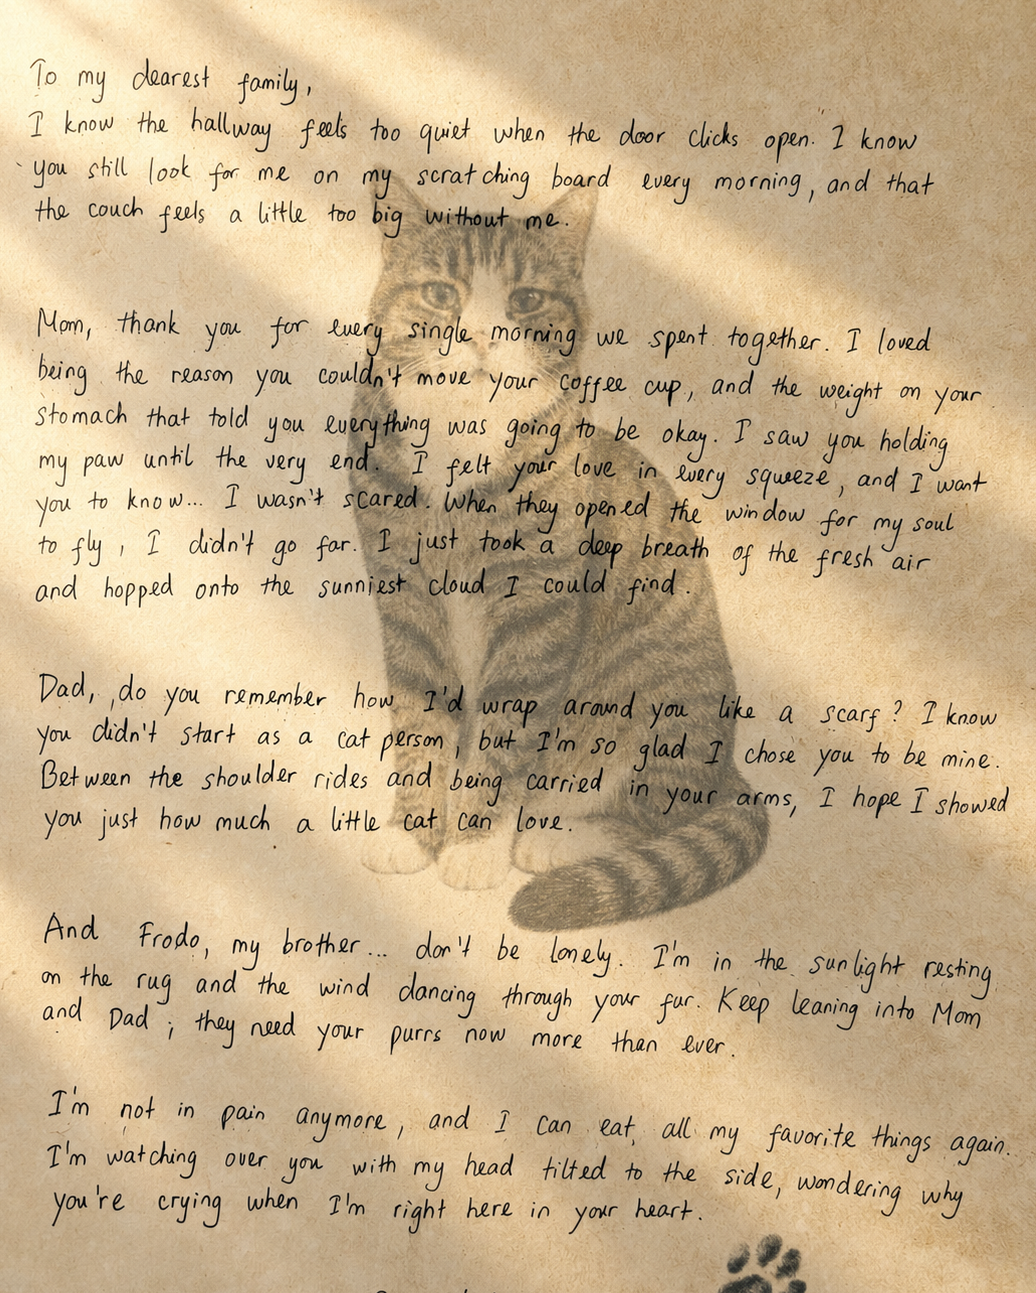 To my dearest family,
I know the hallway feels too quiet when the door clicks open. I know
you still look for me on my scratching board every morning, and that
the couch feels a little too big without me.
Mom, thank you for every single morning we spent together. I loved
being the reason you couldn't move your coffee cup, and the weight on your
stomach that told you everything was going to be okay. I saw you holding
my paw until the very end. I felt your love in every squeeze, and I want
you to know... I wasn't scared. When they opened the window for my soul
to fly, I didn't go far. I just took a deep breath of the fresh air
and hopped onto the sunniest cloud I could find.
Dad, do you remember how I'd wrap around you like a scarf? I know
you didn't start as a cat person, but I'm so glad I chose you to be mine.
Between the shoulder rides and being carried in your arms, I hope I showed
you just how much a little cat can love.
And Frodo, my brother... don't be lonely. I'm in the sunlight resting
on the rug and the wind dancing through your fur. Keep leaning into Mom
and Dad; they need your purrs now more than ever.
I'm not in pain anymore, and I can eat all my favorite things again.
I'm watching over you with my head tilted to the side, wondering why
you're crying when I'm right here in your heart.